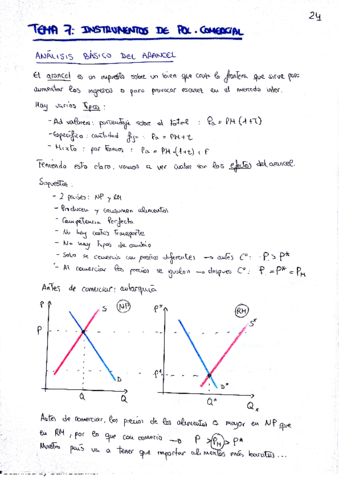 24
TEMA 7: INSTRUMENTOS DE POL. COMERCIAL
ANÁLISIS BÁSICO DEL ARANCEL
El arancel es un impuesto sobre un bien que cruza la frontera que sirve para
aumentar los ingresos o para provocar escasez en el mercado inter.
Hay varios tipos:
- Ad valorem: porcentaje sobre el total : Pa = PM (1+t)
- Específico: cantidad fija: Pa = PM + t
- Mixto: por tramos: Pa = PM · (1+t) + F
Teniendo esto claro, vamos a ver cuáles son los efectos del arancel.
Supuestos:
- 2 países: NP y RM
- Producen y consumen alimentos
- Competencia Perfecta
- No hay costes Transporte
- No hay tipos de cambio
- Solo se comercia con precios diferentes → antes Cº: P > P*
- Al comerciar los precios se igualan → después Cº: P = P* = PM
Antes de comerciar: autarquía
P
S
NP
P
D
Q
Q
P*
RM
S*
P*
D*
Q*
Qx
Antes de comerciar, los precios de los alimentos es mayor en NP que
en RM, por lo que con comercio → P > PM > P*
Nuestro país va a tener que importar alimentos más baratos...